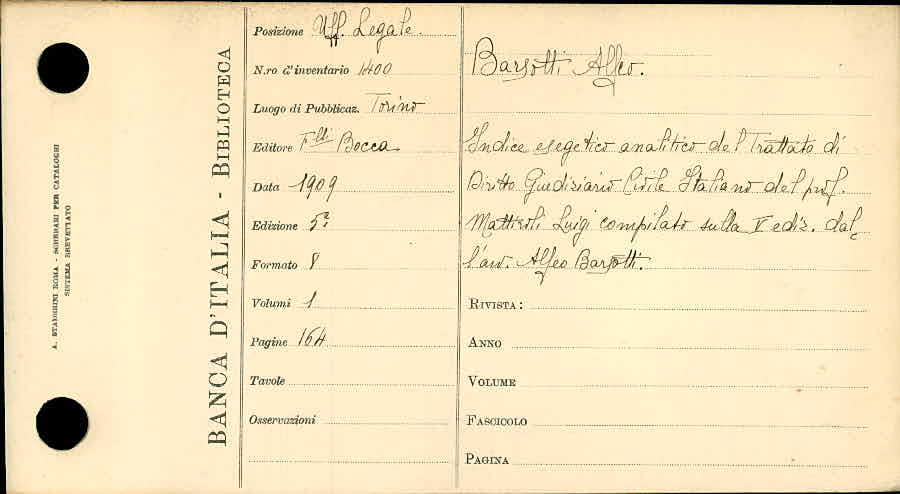 A. STADERINI ROMA - SCHEDARI PER CATALOGHI
SISTEMA BREVETTATO
BANCA D'ITALIA - BIBLIOTECA
Posizione Uff. Legale.
N.ro d'inventario 1400
Luogo di Pubblicaz. Torino
Editore F.lli Bocca
Data 1909
Edizione 5ª
Formato 8
Volumi 1
Pagine 164
Tavole
Osservazioni
Barsotti Alfeo.
Indice esegetico analitico del Trattato di
Diritto Giudiziario Civile Italiano del prof.
Mattiroli Luigi compilato sulla V ediz. dal
l'avv. Alfeo Barsotti.
RIVISTA:
ANNO
VOLUME
FASCICOLO
PAGINA